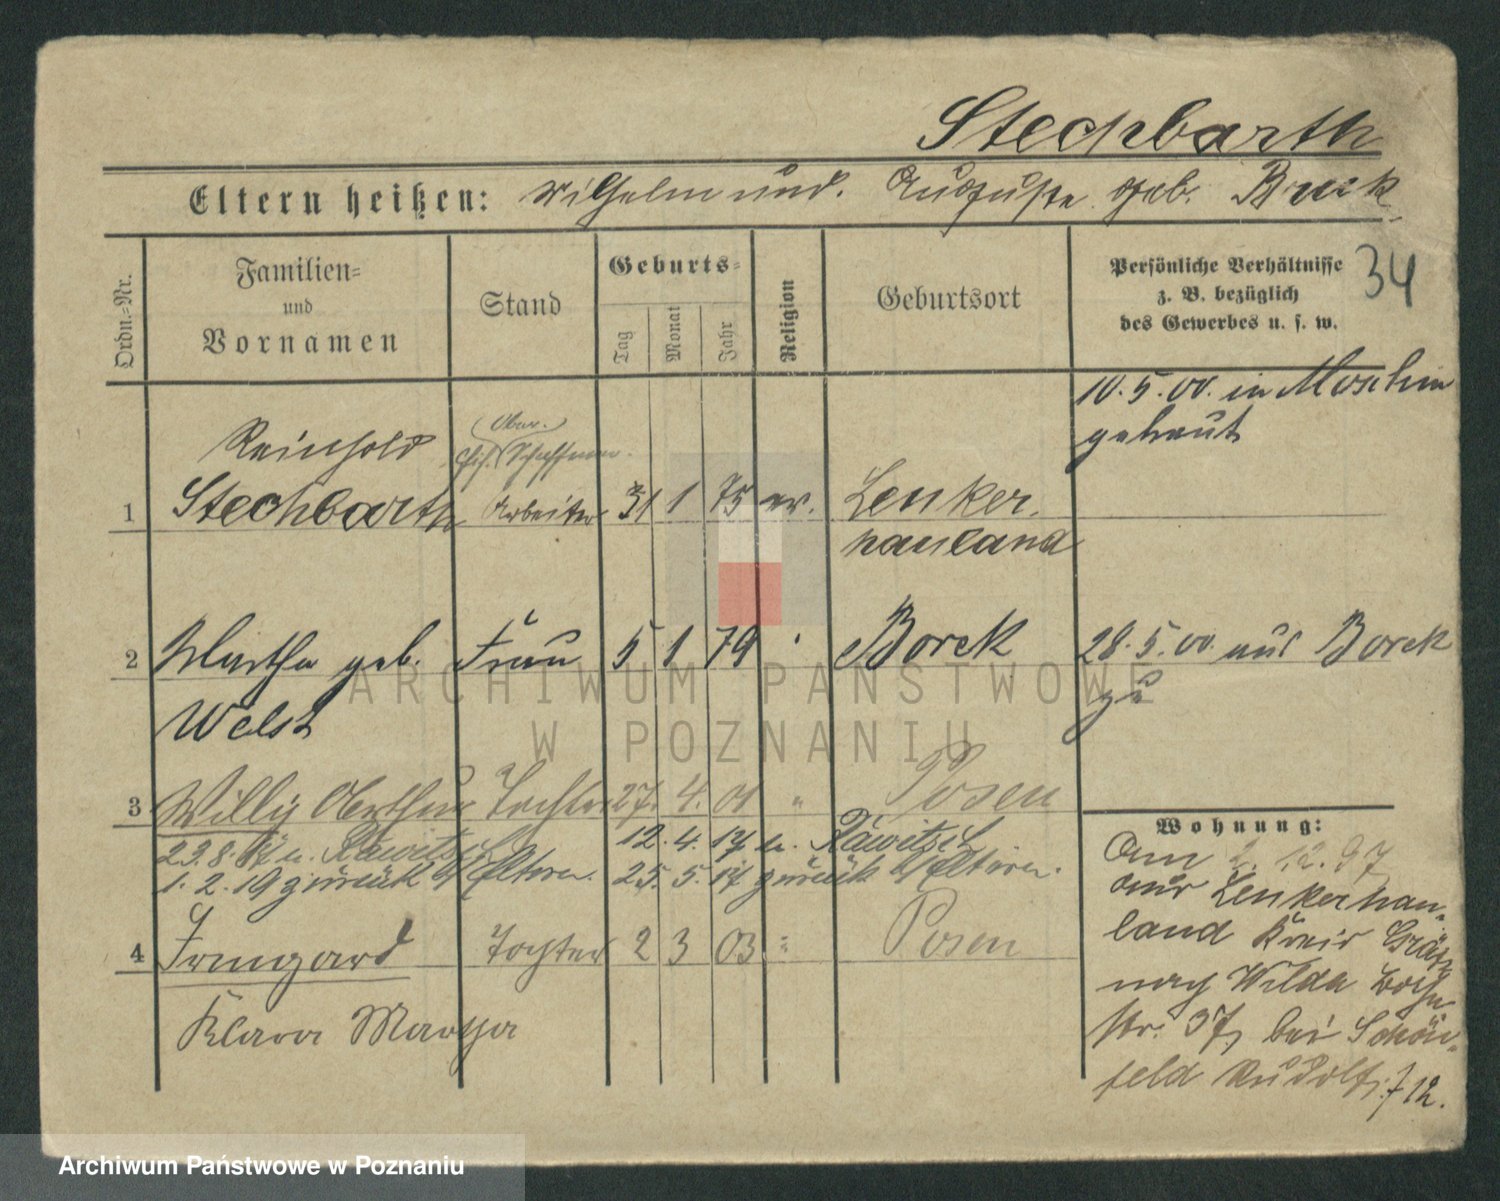 Stechbarth
Eltern heißen: Wilhelm und. Auguste geb. Bruck
34
Ordn.-Nr.
Familien- und Vornamen
Stand
Geburts-
Tag
Monat
Jahr
Religion
Geburtsort
Persönliche Verhältnisse
z. B. bezüglich
des Gewerbes u. s. w.
10. 5. 00. in Moschin
getraut
Reinhold
Ober.
Schaffner.
1 Stechbarth Arbeiter 31 1 75 ev. Lenker-
hauland
2 Martha geb. Frau 5 1 79 Borek
28. 5. 00. aus Borek
zu
Welst
3 Willy Tochter 27. 4. 01 " Posen
23. 8. 17 n. Rawitsch 12. 4. 17 n. Rawitsch
1. 2. 19 zurück b/ Eltern. 25. 5. 17 zurück b/ Eltern.
4 Irmgard Tochter 2 3 03 " Posen
Klara Martha
Wohnung:
Am 2. 12. 97
aus Lenkerhau-
land Kreis Grätz
nach Wilda
str. 37, bei Schön-
feld Rudolf
ARCHIWUM PAŃSTWOWE
W POZNANIU
Archiwum Państwowe w Poznaniu